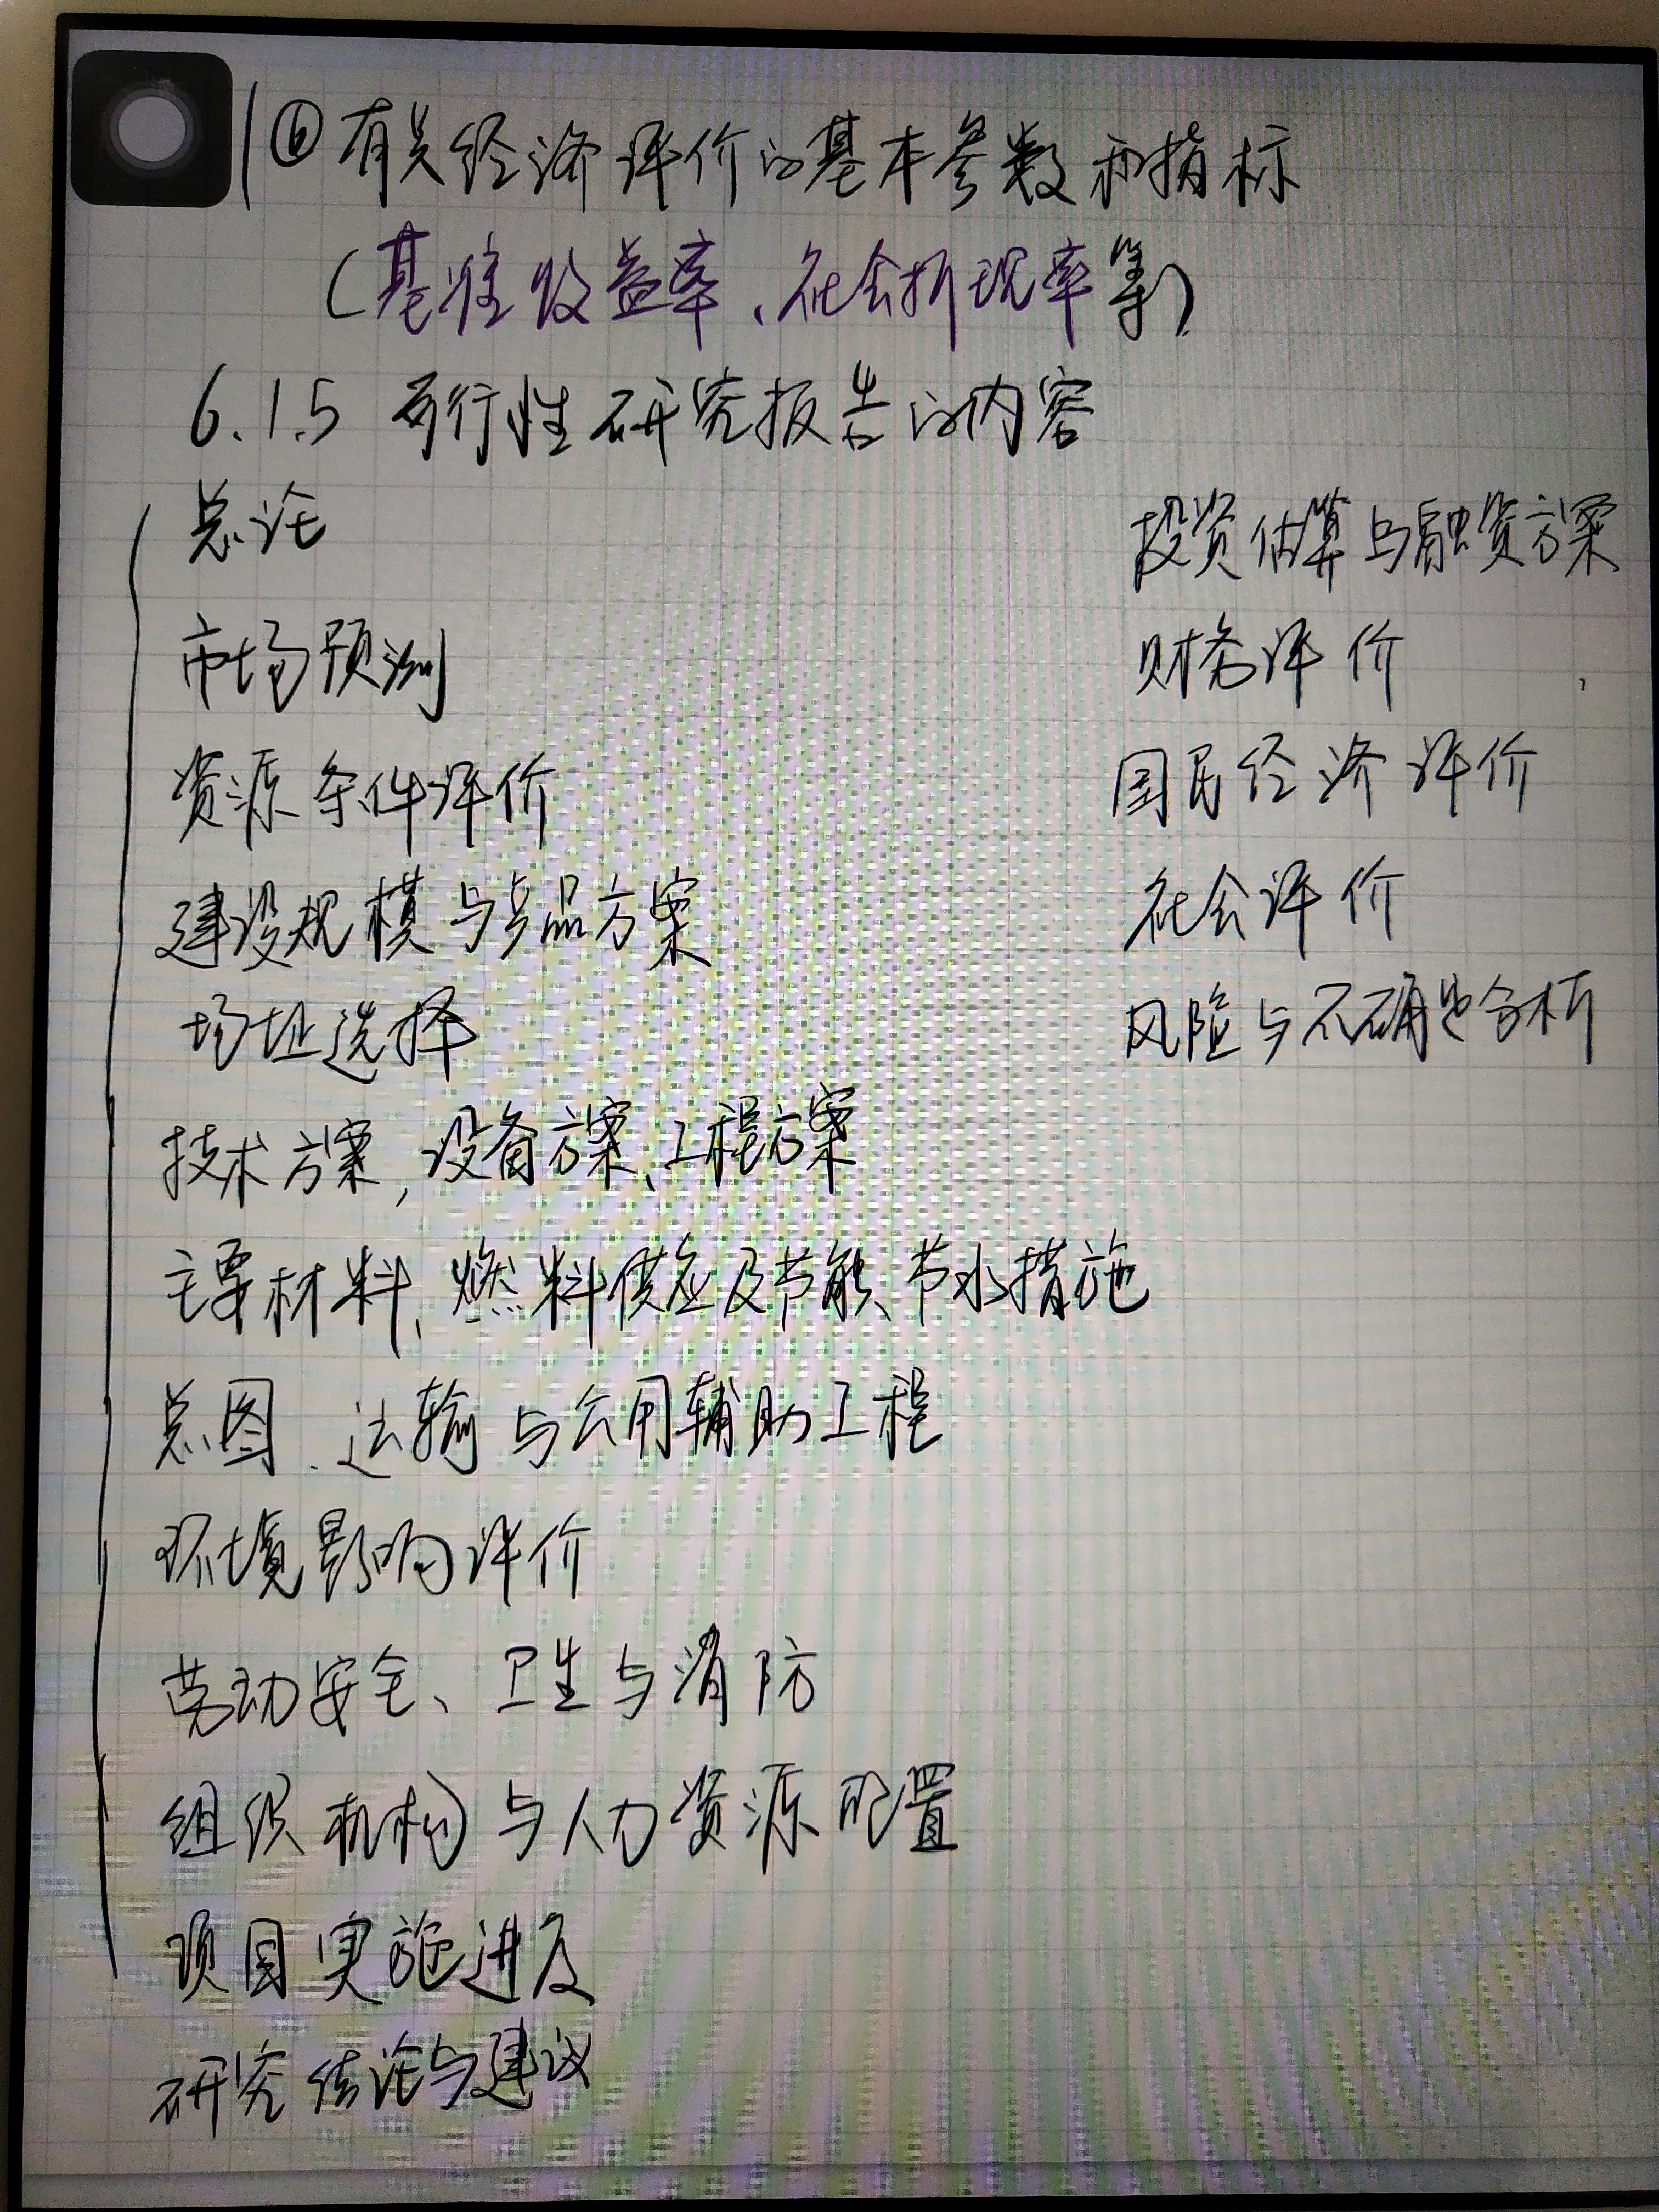 ⑥有关经济评价的基本参数和指标
（基准收益率、社会折现率等）
6.1.5 可行性研究报告的内容
总论
市场预测
资源条件评价
建设规模与产品方案
场址选择
技术方案，设备方案、工程方案
主要材料、燃料供应及节能、节水措施
总图、运输与公用辅助工程
环境影响评价
劳动安全、卫生与消防
组织机构与人力资源配置
项目实施进度
研究结论与建议
投资估算与融资方案
财务评价
国民经济评价
社会评价
风险与不确定分析